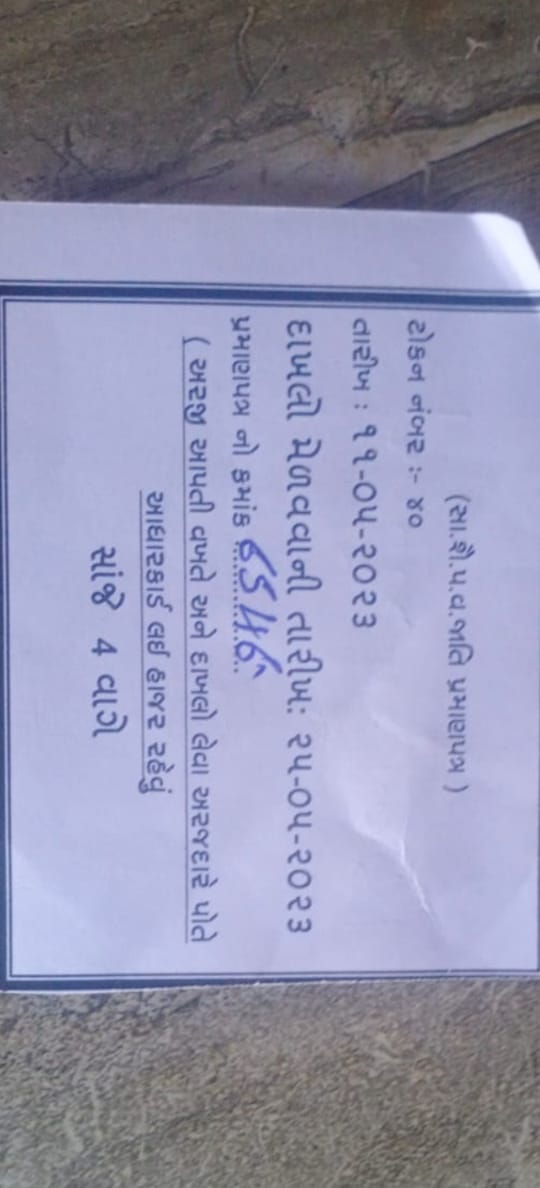 (સા.શૈ.પ.વ.જાતિ પ્રમાણપત્ર )
ટોકન નંબર :- ૪૦
તારીખ : ૧૧-૦૫-૨૦૨૩
દાખલો મેળવવાની તારીખ: ૨૫-૦૫-૨૦૨૩
પ્રમાણપત્ર નો ક્રમાંક
( અરજી આપતી વખતે અને દાખલો લેવા અરજદારે પોતે
આધારકાર્ડ લઈ હાજર રહેવું
સાંજે 4 વાગે